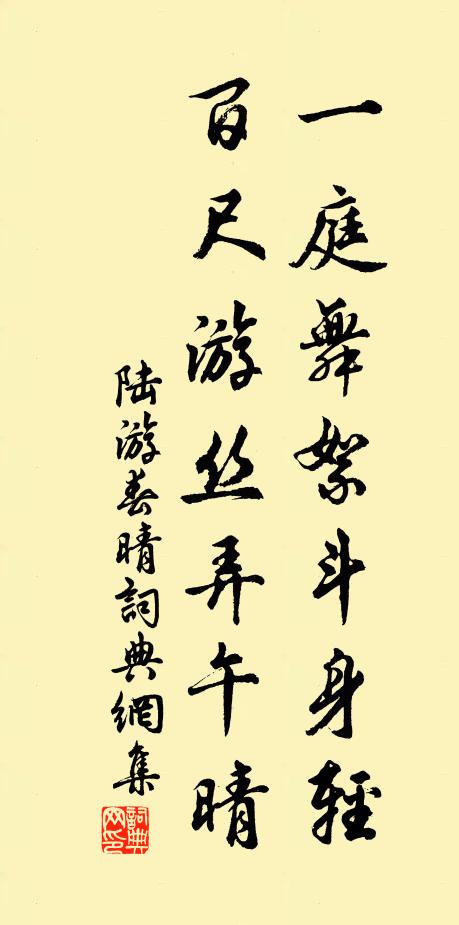 一庭舞絮斗身輕
百尺游丝弄午晴
陆游春晴詞典網集
詞典网印